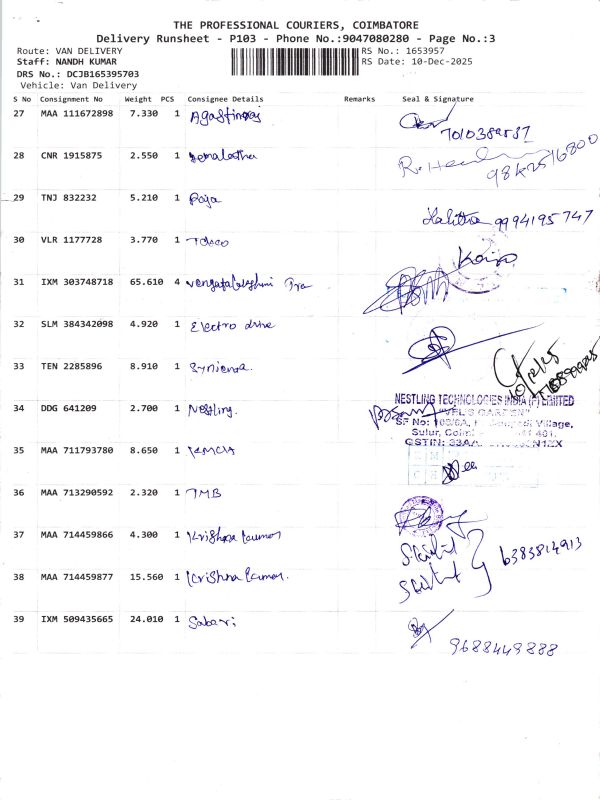 THE PROFESSIONAL COURIERS, COIMBATORE
Delivery Runsheet - P103 - Phone No.:9047080280 - Page No.:3
Route: VAN DELIVERY RS No.: 1653957
Staff: NANDH KUMAR RS Date: 10-Dec-2025
DRS No.: DCJB165395703
Vehicle: Van Delivery
S No Consignment No Weight PCS Consignee Details Remarks Seal & Signature
27 MAA 111672898 7.330 1
7010389537
28 CNR 1915875 2.550 1 Hemalatha
29 TNJ 832232 5.210 1 Roja
Lalitha 9994195747
30 VLR 1177728 3.770 1
31 IXM 303748718 65.610 4
32 SLM 384342098 4.920 1 Electro drive
33 TEN 2285896 8.910 1
10/12/25
34 DDG 641209 2.700 1 Nestling.
NESTLING TECHNOLOGIES INDIA (P) LIMITED
"VEL'S GARDEN"
SF No: Village,
Sulur,
GSTIN:
35 MAA 711793780 8.650 1 KMCH
36 MAA 713290592 2.320 1 TMB
37 MAA 714459866 4.300 1 Krishna kumar
6383814913
38 MAA 714459877 15.560 1 Krishna kumar.
39 IXM 509435665 24.010 1 Sabari
9688449888